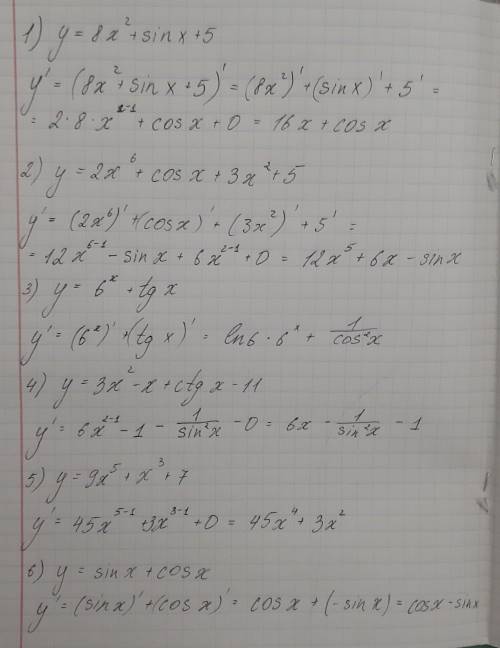 1) y = 8x² + sin x + 5
y' = (8x² + sin x + 5)' = (8x²)' + (sin x)' + 5' =
= 2·8·x²⁻¹ + cos x + 0 = 16x + cos x
2) y = 2x⁶ + cos x + 3x² + 5
y' = (2x⁶)' + (cos x)' + (3x²)' + 5' =
= 12x⁶⁻¹ - sin x + 6x²⁻¹ + 0 = 12x⁵ + 6x - sin x
3) y = 6ˣ + tg x
y' = (6ˣ)' + (tg x)' = ln6·6ˣ + 1/cos²x
4) y = 3x² - x + ctg x - 11
y' = 6x²⁻¹ - 1 - 1/sin²x - 0 = 6x - 1/sin²x - 1
5) y = 9x⁵ + x³ + 7
y' = 45x⁵⁻¹ + 3x³⁻¹ + 0 = 45x⁴ + 3x²
6) y = sin x + cos x
y' = (sin x)' + (cos x)' = cos x + (-sin x) = cos x - sin x